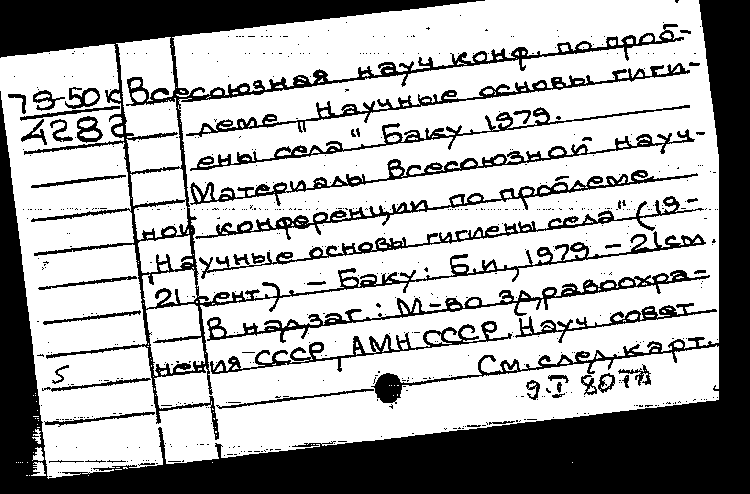 79-50к Всесоюзная науч конф. по проб-
4282 леме „Научные основы гиги-
ены села". Баку. 1979.
Материалы Всесоюзной науч-
ной конференции по проблеме
„Научные основы гигиены села" (19-
21 сент.). – Баку: Б.и., 1979. – 21см.
В надзаг.: М-во здравоохра=
нения СССР, АМН СССР. Науч. совет
5 См. след. карт.
9.I 80